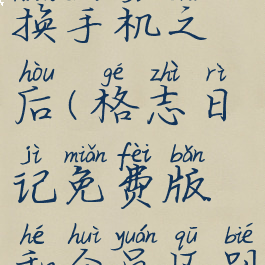 换手机之
hòu gé zhì rì
后(格志日
jì miǎn fèi bǎn
记免费版
hé huì yuán qū bié
和会员区别